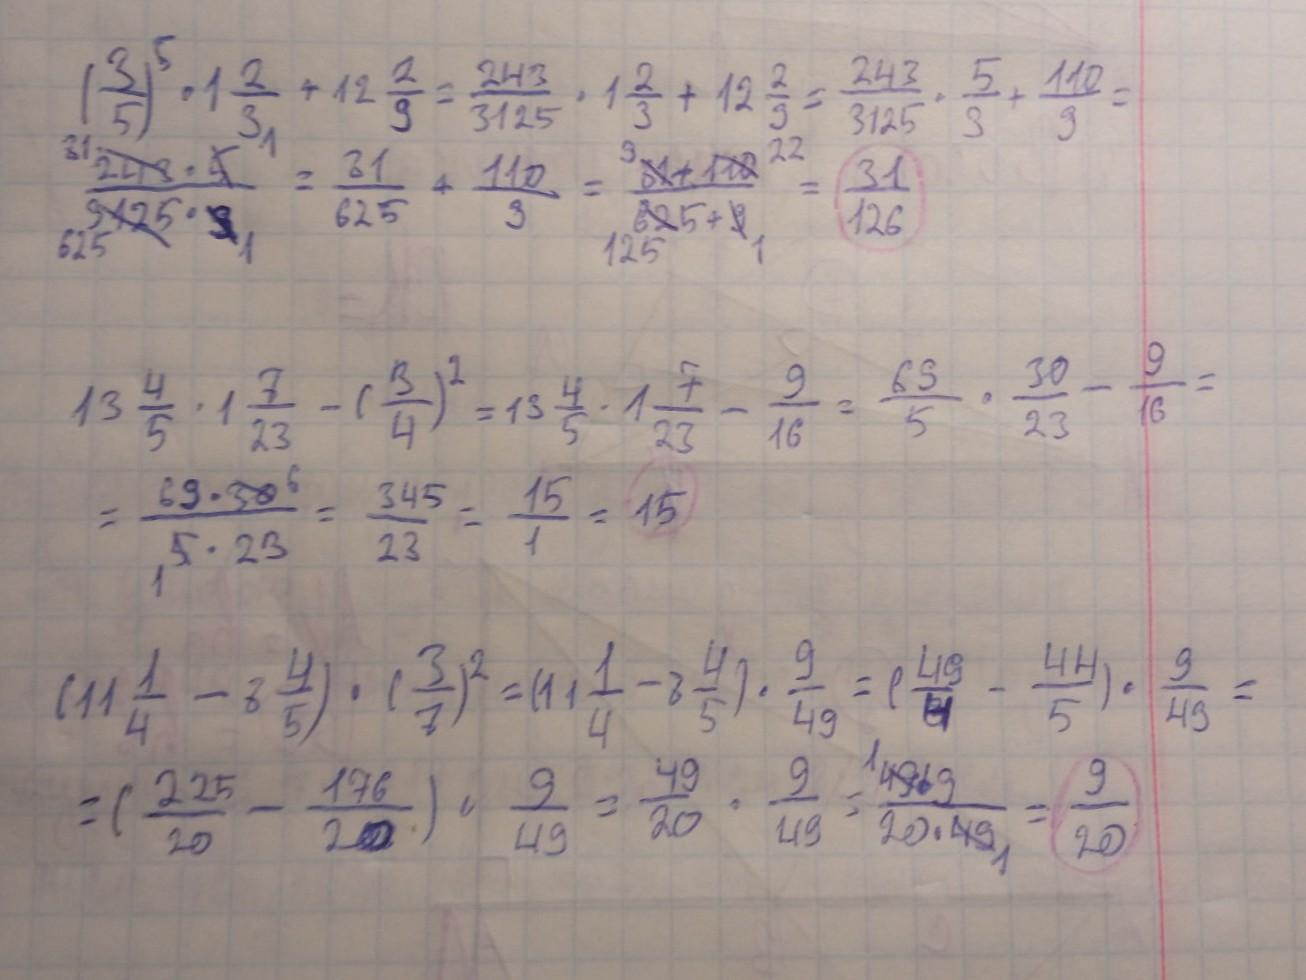 (3/5)^5 · 1 2/3 + 12 2/9 = 243/3125 · 1 2/3 + 12 2/9 = 243/3125 · 5/3 + 110/9 =
31 243 · 5 1 / 625 3125 · 3 1 = 31/625 + 110/9 = 9 81 + 110 22 / 125 625 + 9 1 = 31/126
13 4/5 · 1 7/23 - (3/4)^2 = 13 4/5 · 1 7/23 - 9/16 = 69/5 · 30/23 - 9/16 =
= 69 · 30 6 / 1 5 · 23 = 345/23 = 15/1 = 15
(11 1/4 - 8 4/5) · (3/7)^2 = (11 1/4 - 8 4/5) · 9/49 = (49/4 - 44/5) · 9/49 =
= (225/20 - 176/20) · 9/49 = 49/20 · 9/49 = 1 49 · 9 / 20 · 49 1 = 9/20